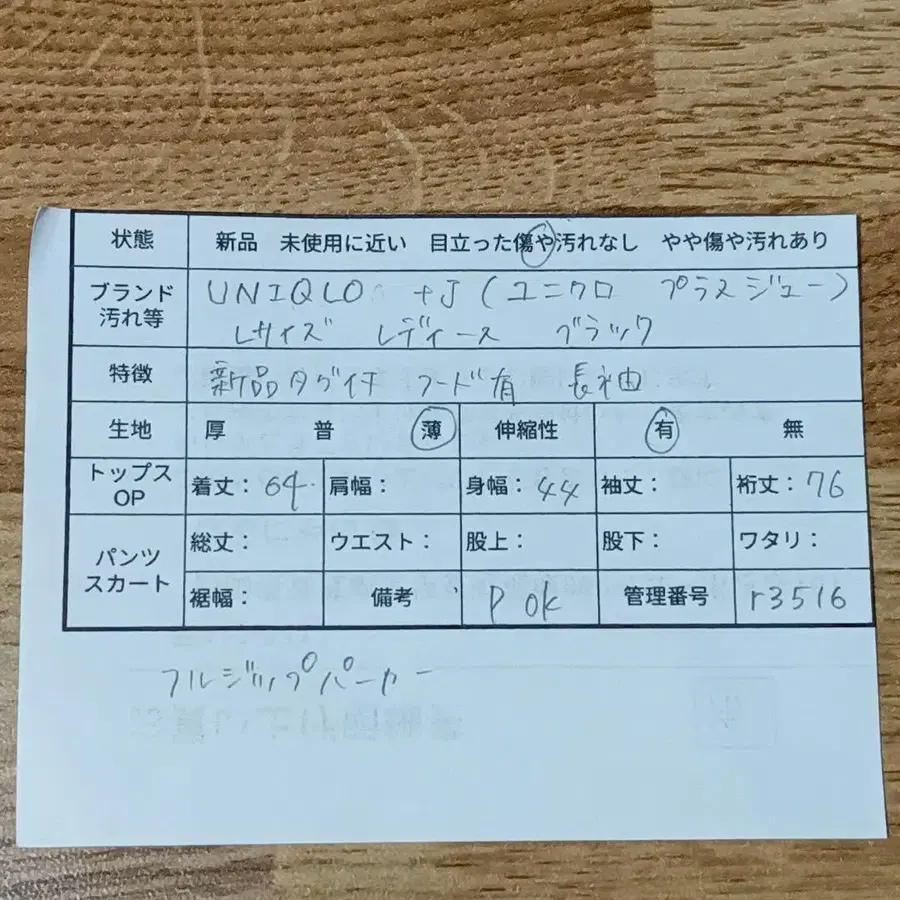 状態 新品 未使用に近い 目立った傷や汚れなし やや傷や汚れあり
ブランド 汚れ等 UNIQLO +J(ユニクロ プラスジェー)
Lサイズ レディース ブラック
特徴 新品タグ付 フード有 長袖
生地 厚 普 薄 伸縮性 有 無
トップス OP 着丈:64 肩幅: 身幅:44 袖丈: 裄丈:76
パンツ スカート 総丈: ウエスト: 股上: 股下: ワタリ:
裾幅: 備考 P OK 管理番号 r3516
フルジップパーカー